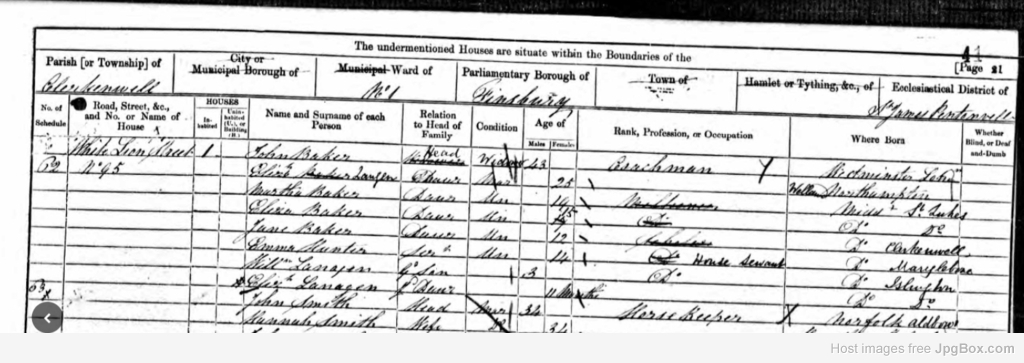 The undermentioned Houses are situate within the Boundaries of the
41
[Page 21
Parish [or Township] of
City or
Municipal Borough of
Municipal Ward of
Parliamentary Borough of
Town of
Hamlet or Tything, &c., of
Ecclesiastical District of
Clerkenwell
No 1
Finsbury
St James Pentonvill
No. of Schedule
Road, Street, &c., and No. or Name of House
HOUSES
In-habited
Unin-habited (U.), or Building (B.)
Name and Surname of each Person
Relation to Head of Family
Condition
Age of
Males
Females
Rank, Profession, or Occupation
Where Born
Whether Blind, or Deaf-and-Dumb
White Lion Street 1 John Baker Head Widower 43 Coachman
62 No 95 Eliza Baker Lanagen Daur Mar 25 Northampton
Martha Baker Daur Un 19 Midd St Lukes
Eliza Baker Daur Un 15 Do Do
Jane Baker Daur Un 12 Do Clerkenwell
Emma Hunter Un 14 House Servant Do Marylebone
Willm Lanagen G Son 3 Do Do Islington
Lanagen G Daur 11 Months Do Do
63 John Smith Head Mar 34 Horse Keeper Norfolk
Hannah Smith Wife 34
Host images free JpgBox.com